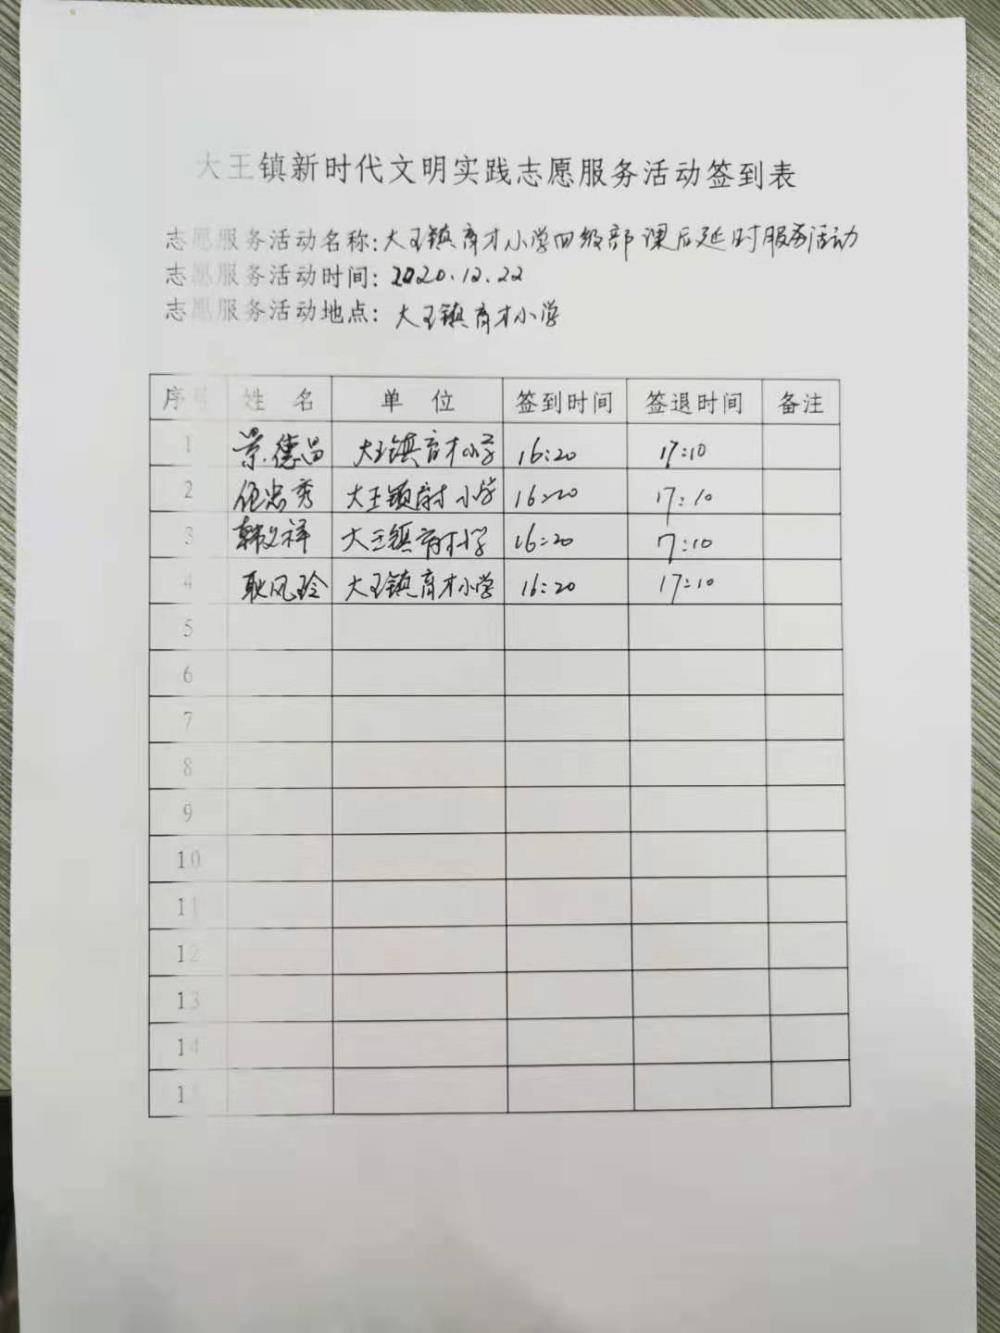 大王镇新时代文明实践志愿服务活动签到表
志愿服务活动名称:大王镇育才小学四级部课后延时服务活动
志愿服务活动时间:2020.12.22
志愿服务活动地点:大王镇育才小学
序号 姓 名 单 位 签到时间 签退时间 备注
1 景德昌 大王镇育才小学 16:20 17:10
2 任忠秀 大王镇育才小学 16:20 17:10
3 韩文祥 大王镇育才小学 16:20 7:10
4 耿风玲 大王镇育才小学 16:20 17:10
5
6
7
8
9
10
11
12
13
14
1